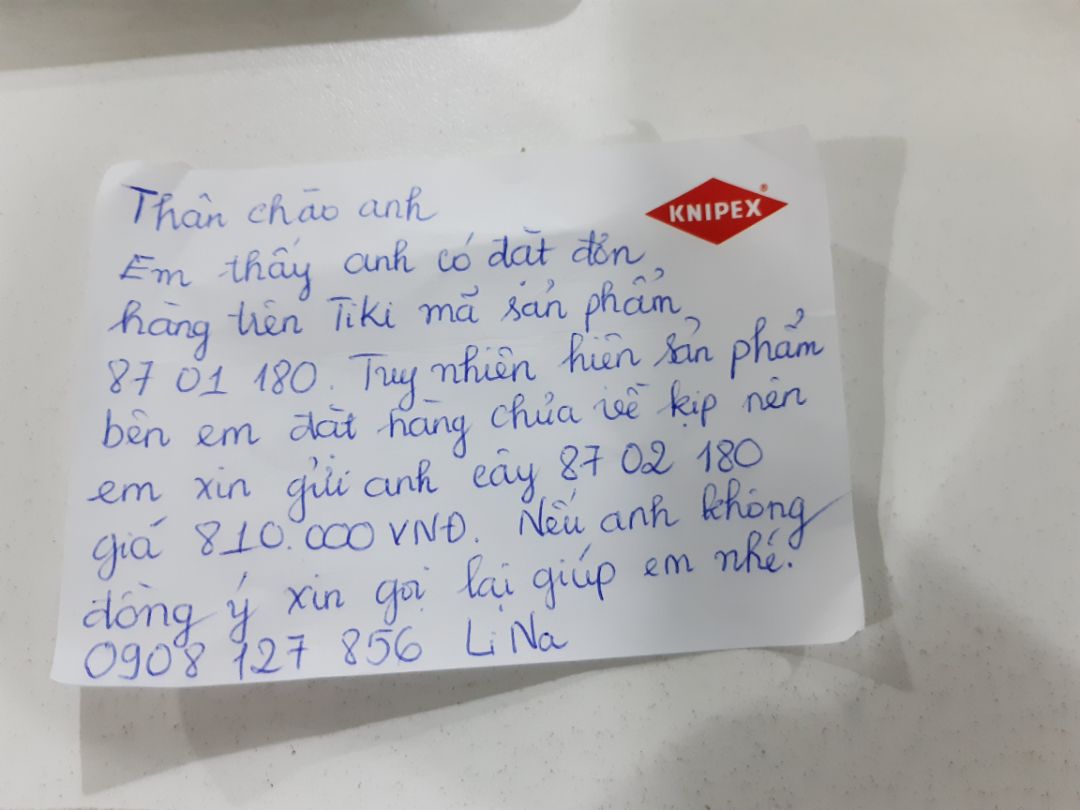 Thân chào anh
KNIPEX
Em thấy anh có đặt đơn
hàng trên Tiki mã sản phẩm
87 01 180. Tuy nhiên hiên sản phẩm
bên em đặt hàng chưa về kịp nên
em xin gửi anh cây 87 02 180
giá 810.000 VNĐ. Nếu anh không
đồng ý xin gọi lại giúp em nhé.
0908 127 856 Li Na